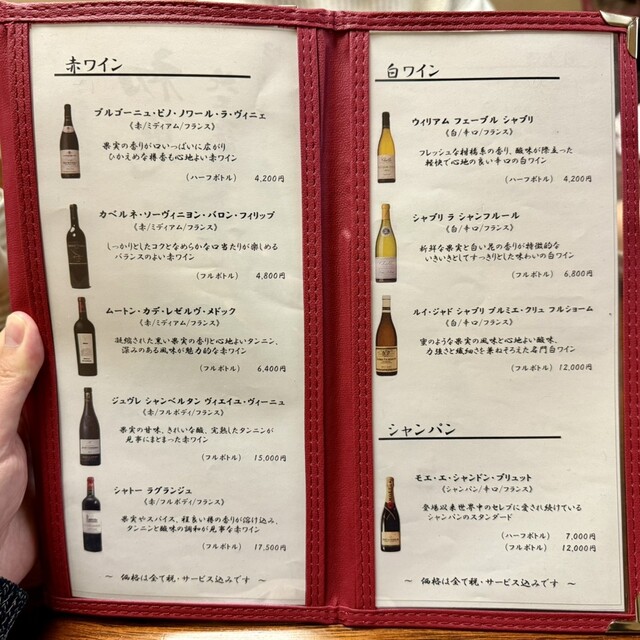 赤ワイン
ブルゴーニュ・ピノ・ノワール・ラ・ヴィニエ
《赤/ミディアム/フランス》
果実の香りが口いっぱいに広がり
ひかえめな樽香も心地よい赤ワイン
(ハーフボトル) 4,200円
カベルネ・ソーヴィニヨン・バロン・フィリップ
《赤/ミディアム/フランス》
しっかりとしたコクとなめらかな口当たりが楽しめる
バランスのよい赤ワイン
(フルボトル) 4,800円
ムートン・カデ・レゼルヴ・メドック
《赤/ミディアム/フランス》
凝縮された黒い果実の香りと心地よいタンニン、
深みのある風味が魅力的な赤ワイン
(フルボトル) 6,400円
ジュヴレ シャンベルタン ヴィエイユ・ヴィーニュ
《赤/フルボディ/フランス》
果実の甘味、きれいな酸、完熟したタンニンが
見事にまとまった赤ワイン
(フルボトル) 15,000円
シャトー ラグランジュ
《赤/フルボディ/フランス》
果実やスパイス、程良い樽の香りが溶け込み、
タンニンと酸味の調和が見事な赤ワイン
(フルボトル) 17,500円
～ 価格は全て税・サービス込みです ～
白ワイン
ウィリアム フェーブル シャブリ
《白/辛口/フランス》
フレッシュな柑橘系の香り、酸味が際立った
軽快で心地の良い辛口の白ワイン
(ハーフボトル) 4,200円
シャブリ ラ シャンフルール
《白/辛口/フランス》
新鮮な果実と白い花の香りが特徴的な
いきいきとしてすっきりとした味わいの白ワイン
(フルボトル) 6,800円
ルイ・ジャド シャブリ プルミエ・クリュ フルショーム
《白/辛口/フランス》
蜜のような果実の風味と心地よい酸味、
力強さと繊細さを兼ねそろえた名門白ワイン
(フルボトル) 12,000円
シャンパン
モエ・エ・シャンドン・ブリュット
《シャンパン/辛口/フランス》
登場以来世界中のセレブに愛され続けている
シャンパンのスタンダード
(ハーフボトル) 7,000円
(フルボトル) 12,000円
～ 価格は全て税・サービス込みです ～